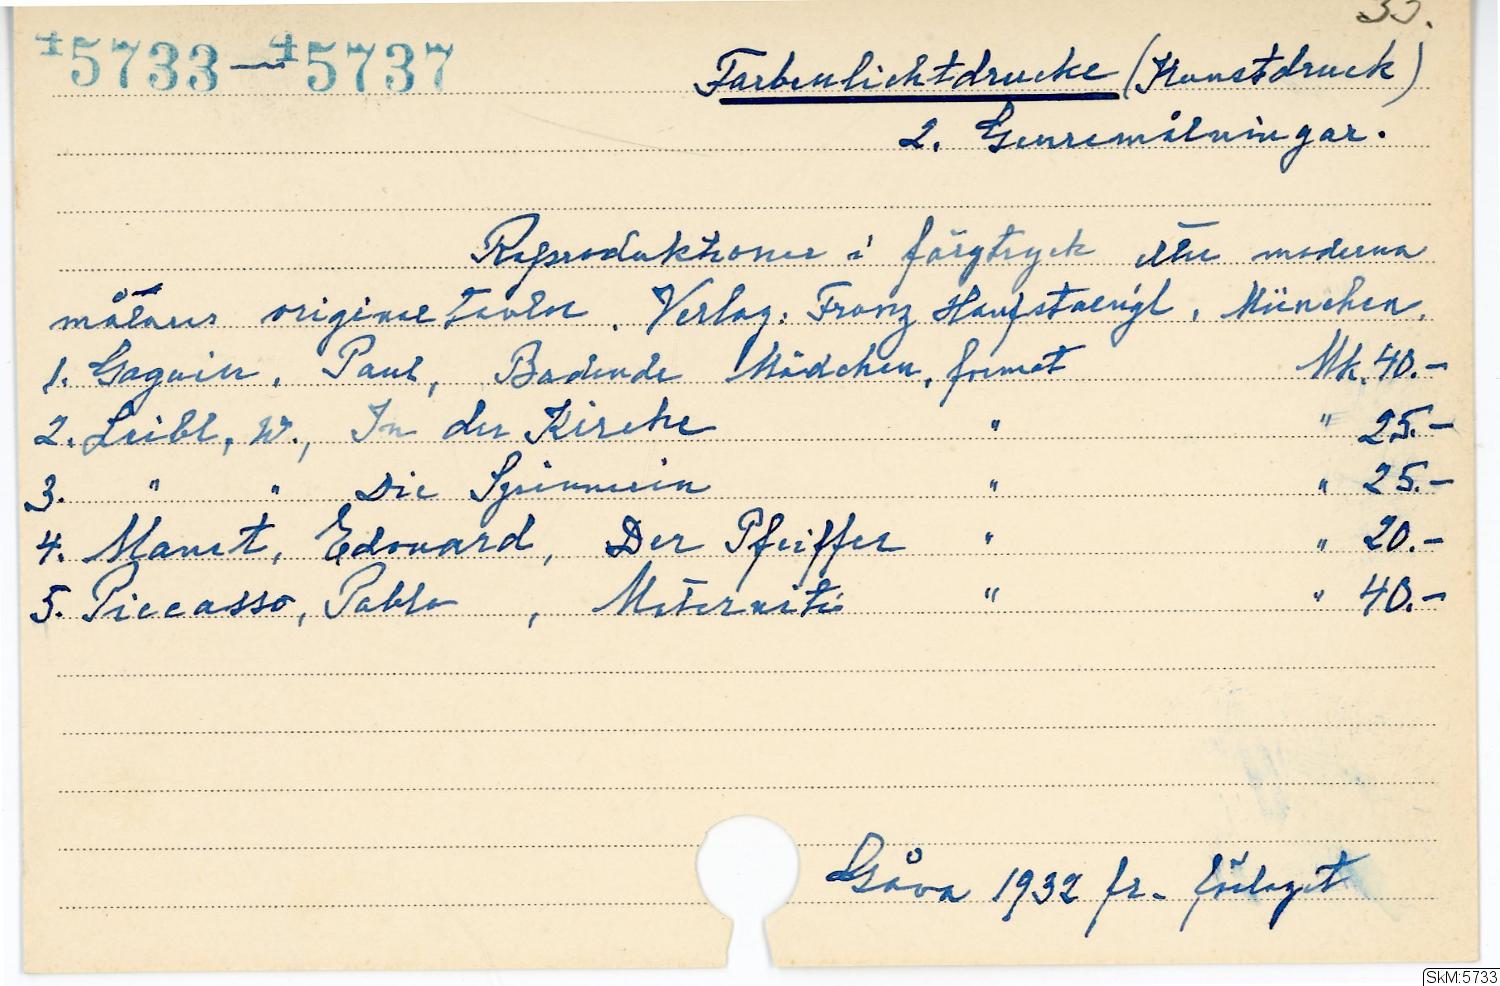 33.
45733—45737
Farbenlichtdrucke (Kunstdruck)
2. Genremålningar.
Reproduktioner i färgtryck efter moderna
målares originaltavlor. Verlag: Franz Hanfstaengl, München.
1. Gaguin, Paul, Badende Mädchen, format Mk. 40.-
2. Leibl, W., In der Kirche " " 25.-
3. " " Die Spinnerin " " 25.-
4. Manet, Edouard, Der Pfeiffer " " 20.-
5. Piccasso, Pablo, Maternité " " 40.-
Gåva 1932 fr. förlaget
SkM:5733